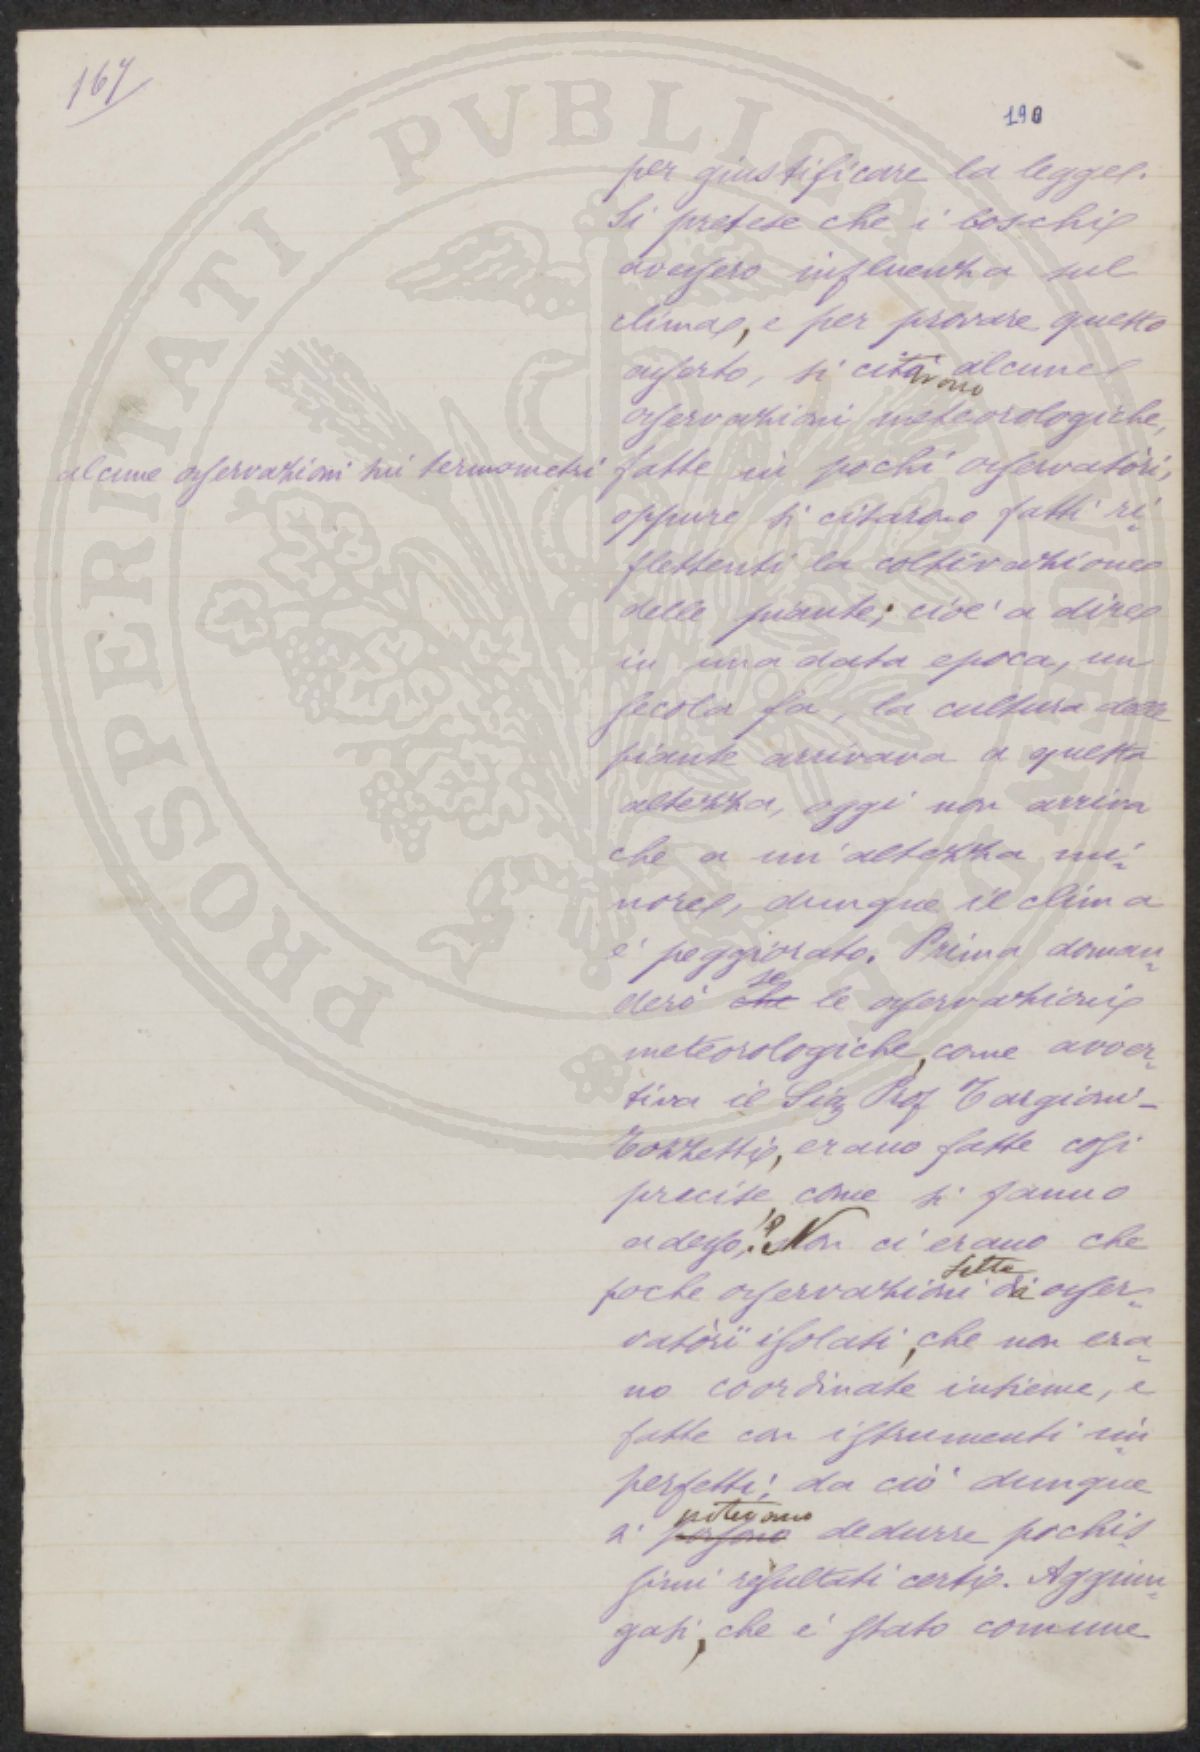 167
190
per giustificare la legge.
Si pretese che i boschi
avessero influenza sul
clima, e per provare questo
asserto, si citarono alcune
osservazioni meteorologiche,
alcune osservazioni sui termometri
fatte in pochi osservatòri,
oppure si citarono fatti ri-
flettenti la coltivazione
delle piante; cioè a dire
in una data epoca, un
secolo fa, la cultura delle
piante arrivava a questa
altezza, oggi non arriva
che a un'altezza mi-
nore, dunque il clima
è peggiorato. Prima doman-
derò che se le osservazioni
meteorologiche, come avver-
tiva il Sig Prof Targioni-
Tozzetti, erano fatte così
precise come si fanno
adesso? Non ci erano che
poche osservazioni fatte da osser-
vatòrii isolati, che non era-
no coordinate insieme, e
fatte con istrumenti im-
perfetti; da ciò dunque
si possono potevano dedurre pochis-
simi resultati certi. Aggiun-
gasi, che è stato comune
PROSPERITATI PVBLICAE